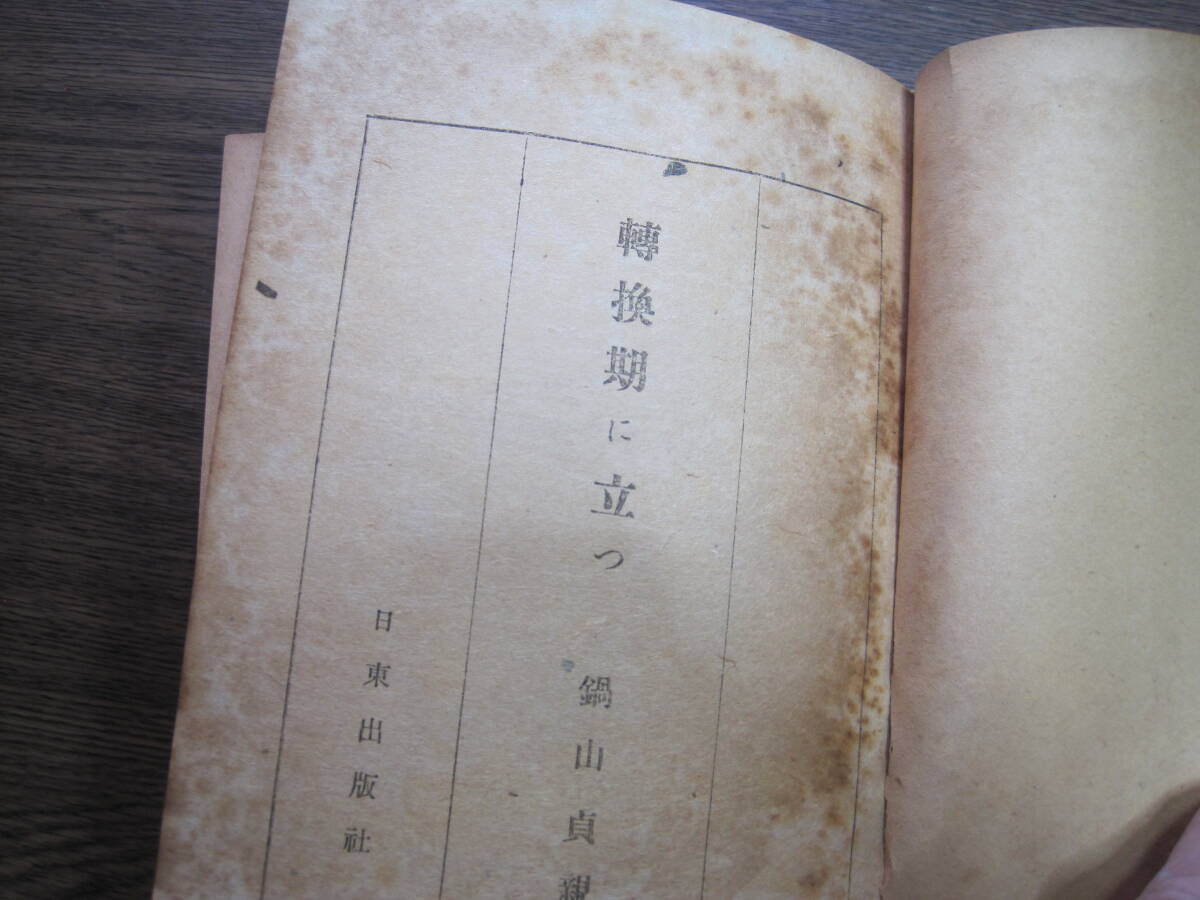 轉換期に立つ 鍋山貞親
日東出版社